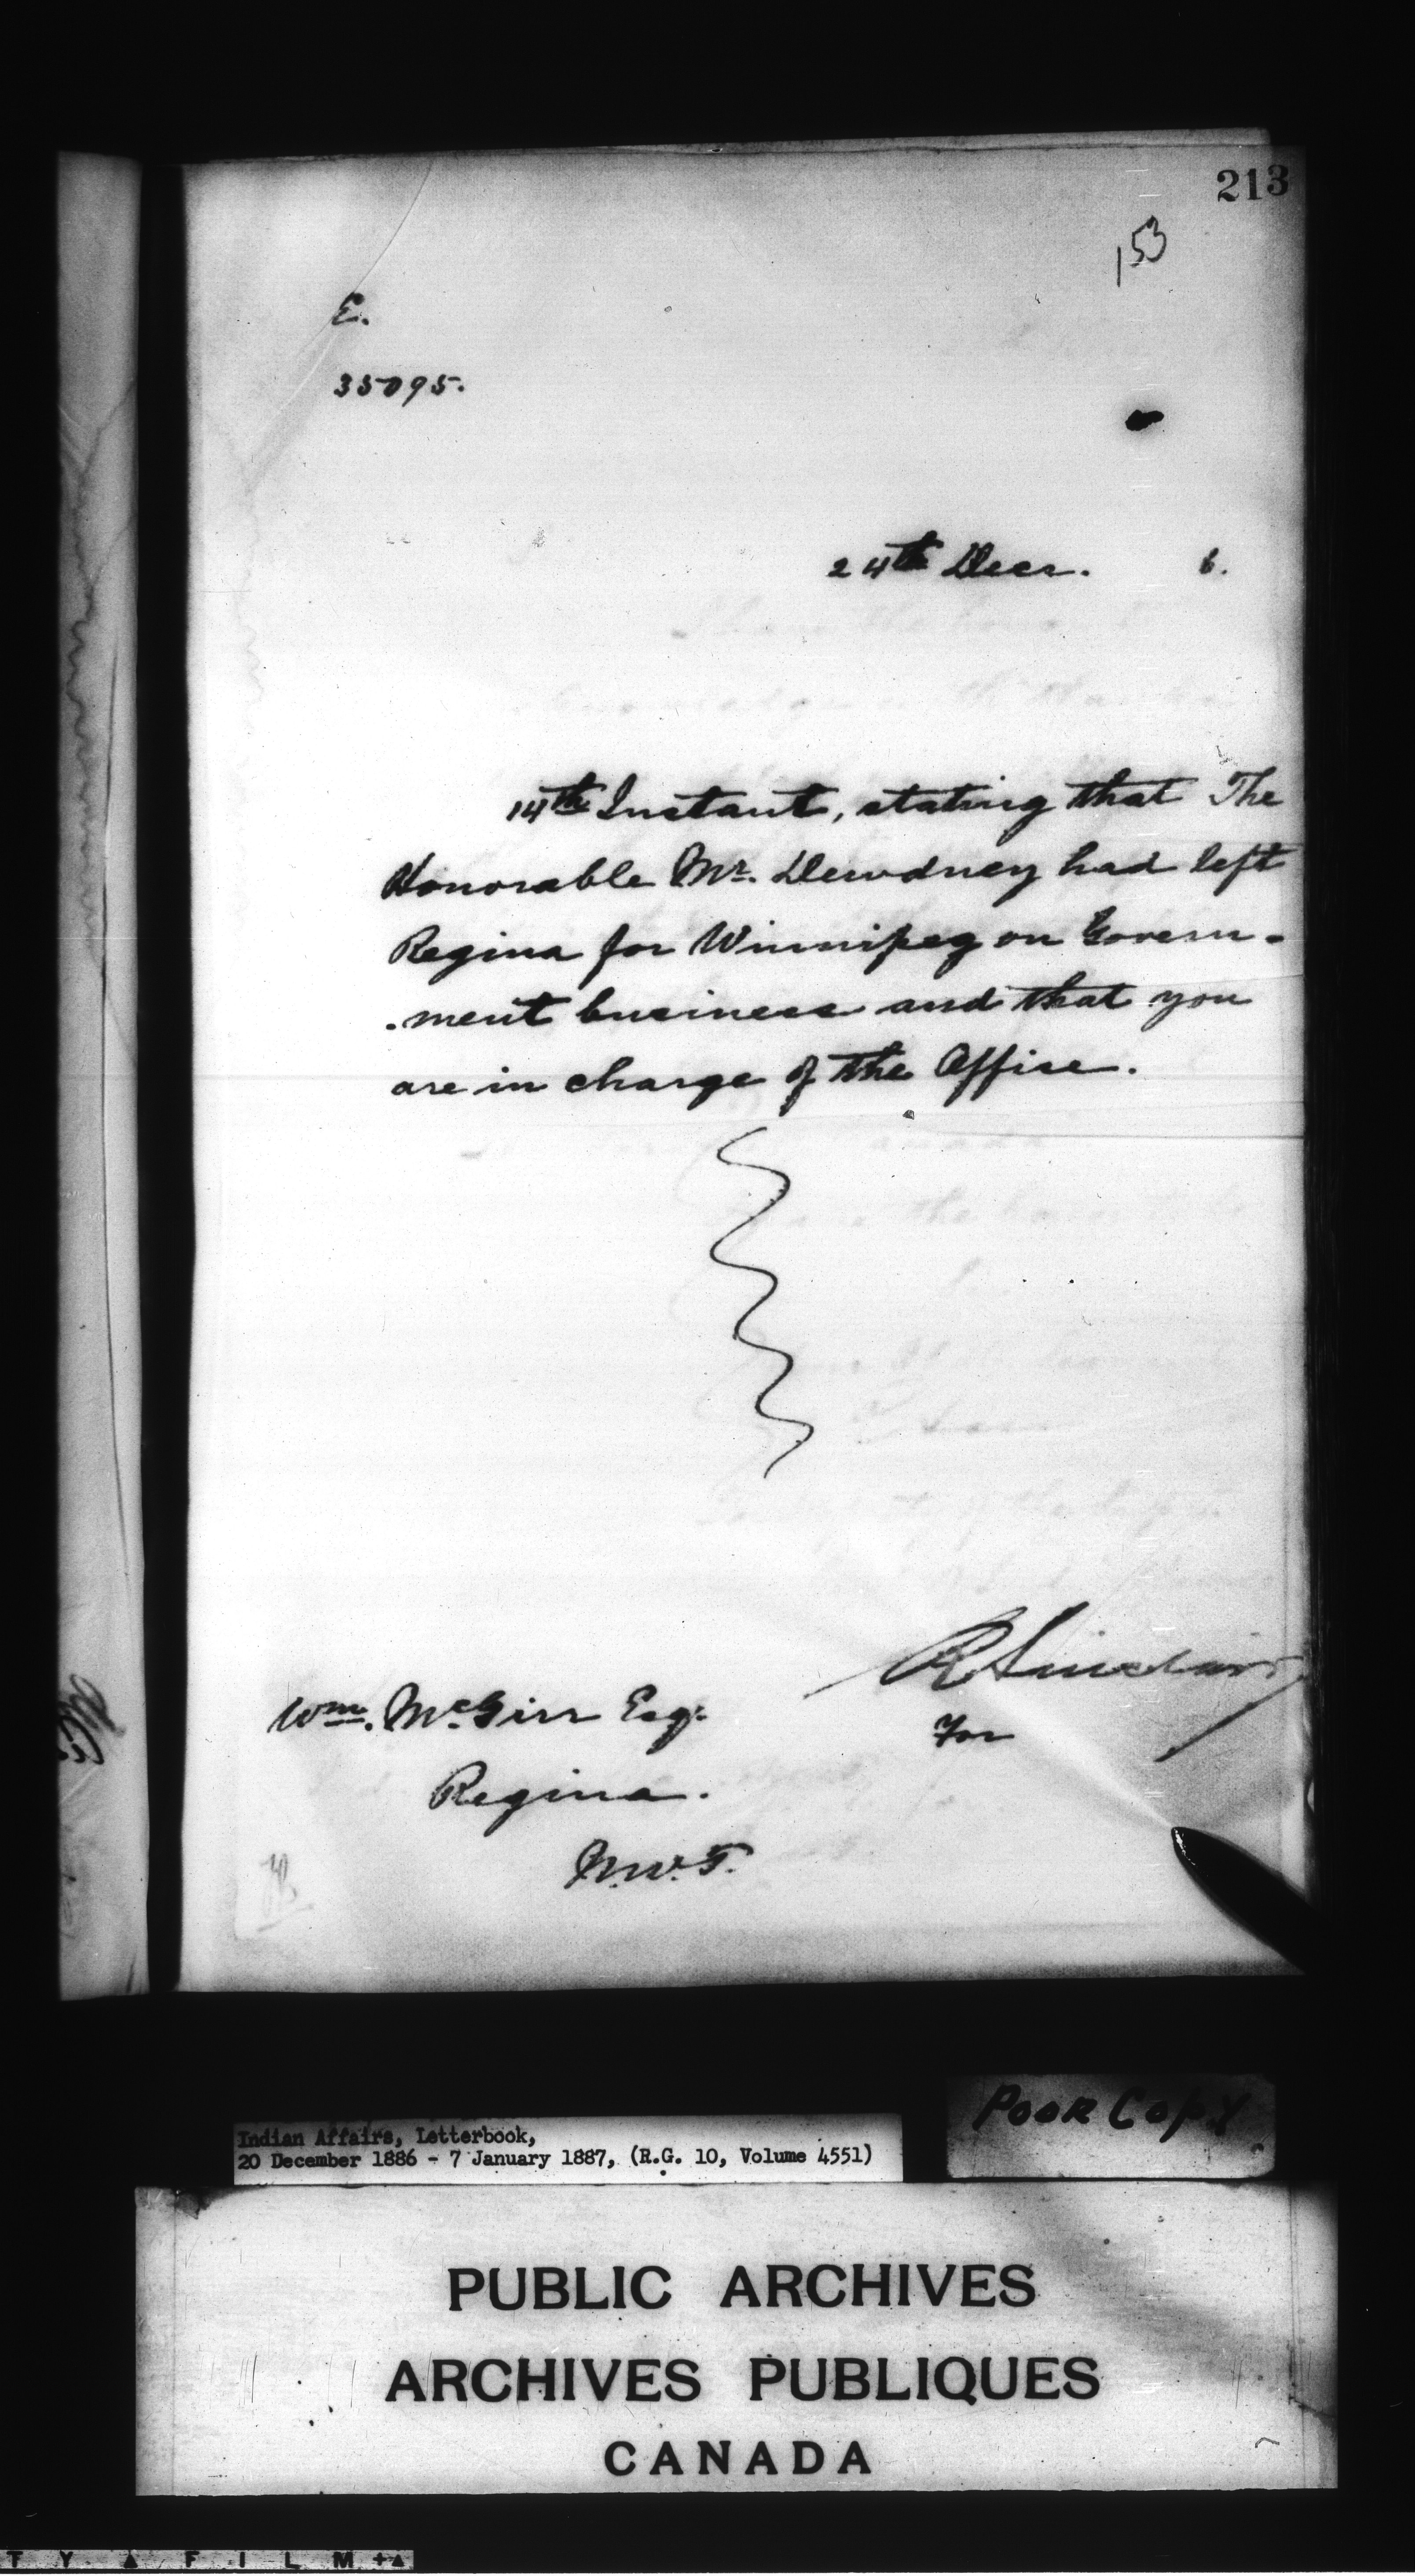 213
153
E.
35095.
24th Decr. 6.
14th Instant, stating that The
Honorable Mr. Dewdney had left
Regina for Winnipeg on Govern-
-ment business and that you
are in charge of the Office.
R Sinclair
For
Wm. McGirr Esqr.
Regina.
N.W.T.
POOR COPY
Indian Affairs, Letterbook,
20 December 1886 - 7 January 1887, (R.G. 10, Volume 4551)
PUBLIC ARCHIVES
ARCHIVES PUBLIQUES
CANADA
T Y ▲ F I L M